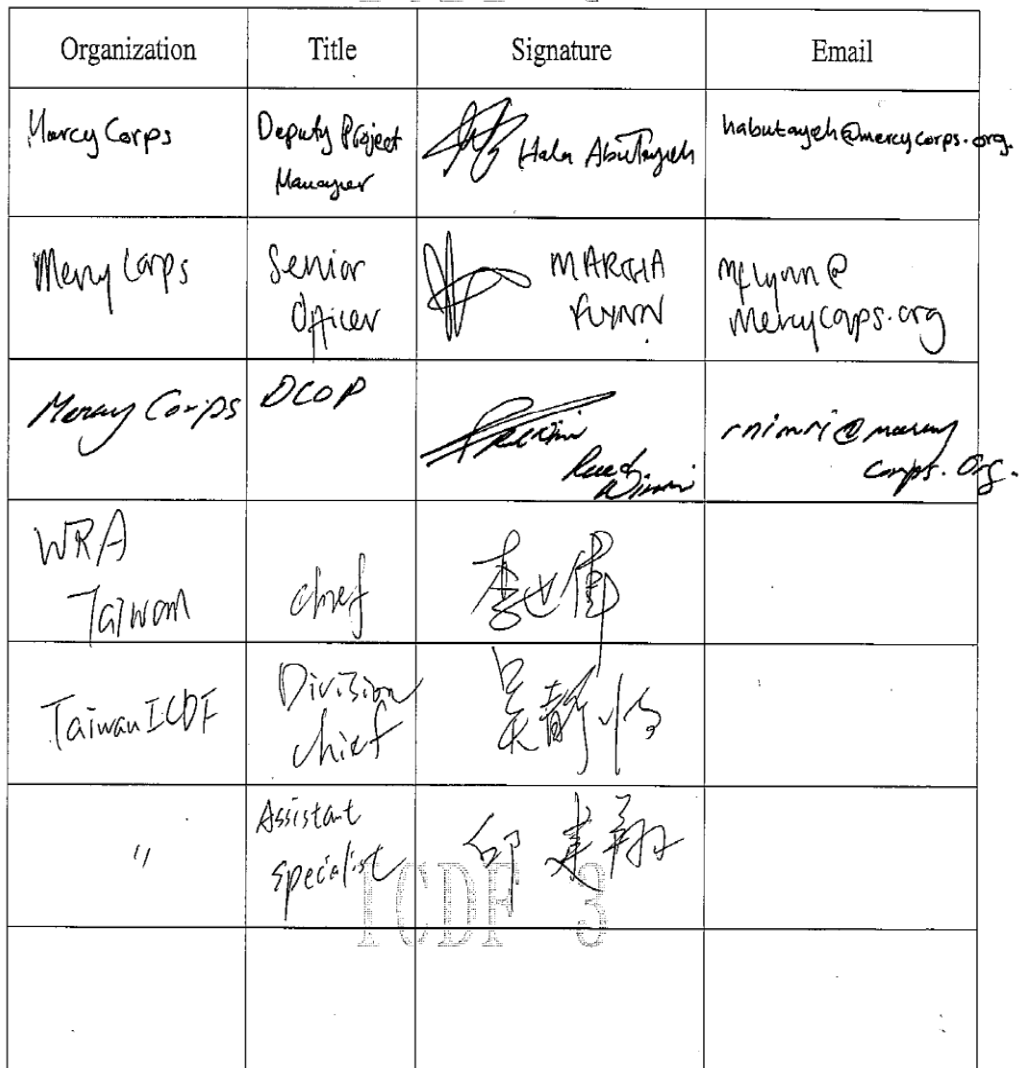 Organization Title Signature Email
Mercy Corps Deputy Project Manager Hala Abutayeh habutayeh@mercycorps.org
Mercy Corps Senior Officer MARTHA FLYNN mflynn@mercycorps.org
Mercy Corps DCOP Nimri rnimri@mercycorps.org.
WRA Taiwan chief 李世偉
TaiwanICDF Division chief 吳靜怡
〃 Assistant specialist 邱建翔
ICDF 3